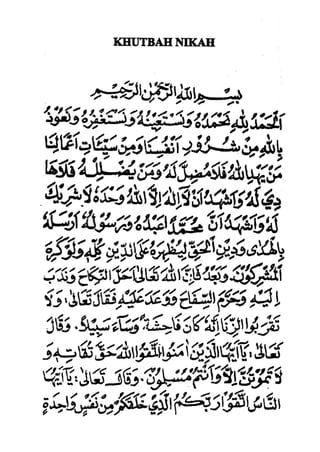 KHUTBAH NIKAH
بِسْمِ اللهِ الرَّحْمٰنِ الرَّحِيْمِ
اَلْحَمْدُ لِلّٰهِ نَحْمَدُهُ وَنَسْتَعِيْنُهُ وَنَسْتَغْفِرُهُ وَنَعُوْذُ
بِاللهِ مِنْ شُرُوْرِ اَنْفُسِنَا وَمِنْ سَيِّئَاتِ اَعْمَالِنَا
مَنْ يَهْدِ اللهُ فَلَا مُضِلَّ لَهُ وَمَنْ يُضْلِلْهُ فَلَا هَا
دِيَ لَهُ وَاَشْهَدُ اَنْ لَا اِلٰهَ اِلَّا اللهُ وَحْدَهُ لَا شَرِيْكَ
لَهُ وَاَشْهَدُ اَنَّ مُحَمَّدًا عَبْدُهُ وَرَسُوْلُهُ اَرْسَلَهُ
بِالْهُدٰى وَدِيْنِ الْحَقِّ لِيُظْهِرَهُ عَلَى الدِّيْنِ كُلِّهِ وَلَوْ كَرِهَ
الْمُشْرِكُوْنَ. وَبَعْدُ فَاِنَّ اللهَ تَعَالٰى اَحَلَّ النِّكَاحَ وَنَدَبَ
اِلَيْهِ وَحَرَّمَ السِّفَاحَ وَوَعَدَ عَلَيْهِ فَقَالَ تَعَالٰى: وَلَا
تَقْرَبُوا الزِّنَا اِنَّهُ كَانَ فَاحِشَةً وَسَاءَ سَبِيْلًا. وَقَالَ
تَعَالٰى: يَااَيُّهَا الَّذِيْنَ اٰمَنُوا اتَّقُوا اللهَ حَقَّ تُقَاتِهِ وَ
لَا تَمُوْتُنَّ اِلَّا وَاَنْتُمْ مُسْلِمُوْنَ. وَقَالَ تَعَالٰى: يَااَيُّهَا
النَّاسُ اتَّقُوْا رَبَّكُمُ الَّذِيْ خَلَقَكُمْ مِنْ نَفْسٍ وَاحِدَةٍ